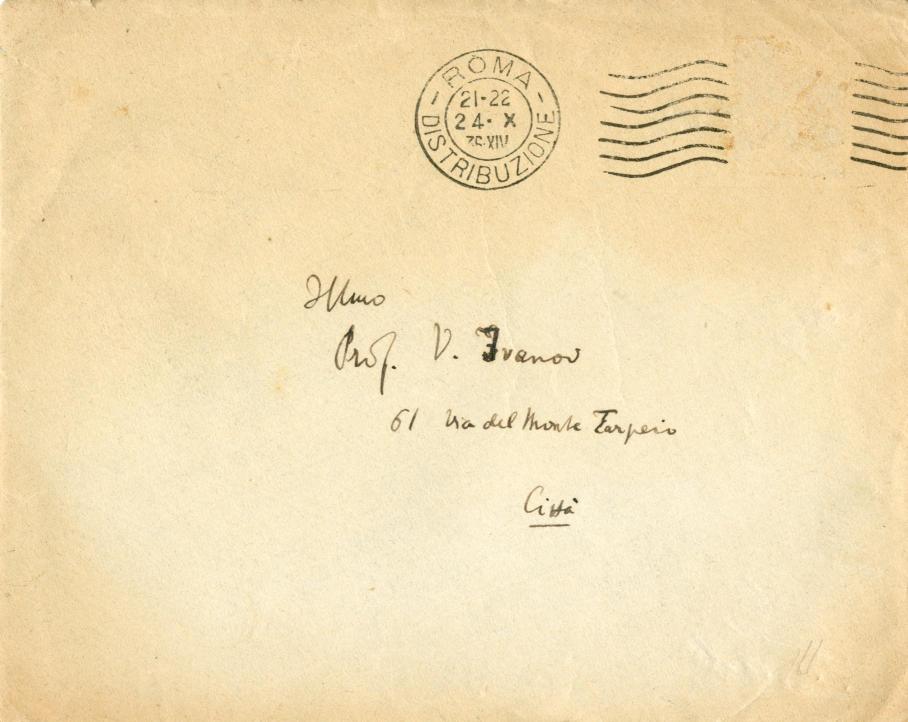 ROMA
21-22
24· X
36·XIV
DISTRIBUZIONE
Illmo
Prof. V. Ivanov
61 Via del Monte Tarpeio
Città